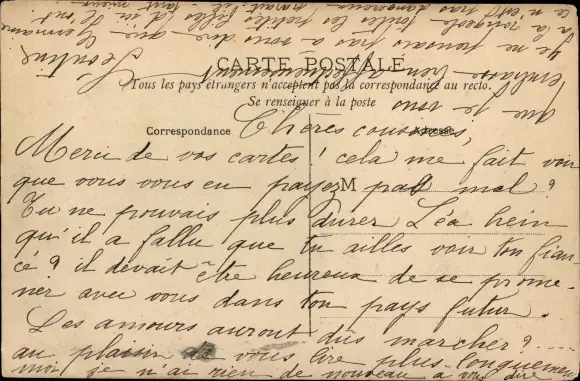 CARTE POSTALE
Tous les pays étrangers n'acceptent pas la correspondance au recto.
Se renseigner à la poste
Correspondance
Adresse
M
Chères cousines,
Merci de vos cartes ! cela me fait voir
que vous vous en payez pas mal ?
Tu ne pouvais plus durer Léa hein
qu'il a fallu que tu ailles voir ton fian-
cé ? il devait être heureux de se prome-
ner avec vous dans ton pays futur.
Les amours auront dûs marcher ? ....
au plaisir de vous lire plus longuement
moi je n'ai rien de nouveau à vous dire
que je vous
embrasse bien affectueusement
Léontine
Je ne pouvais pas vous dire que Germaine
a la rougeole toutes les petites filles
ce n'est pas dangereux